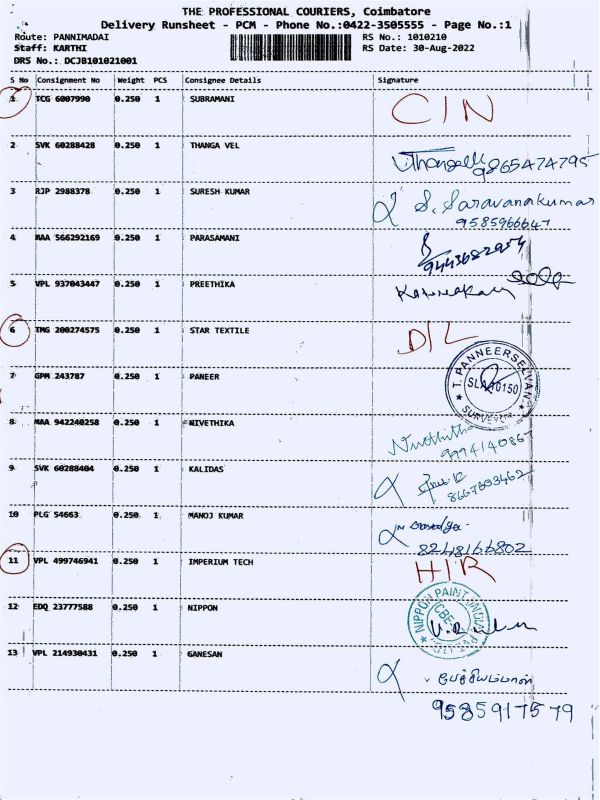 THE PROFESSIONAL COURIERS, Coimbatore
Delivery Runsheet - PCM - Phone No.:0422-3505555 - Page No.:1
Route: PANNIMADAI RS No.: 1010210
Staff: KARTHI RS Date: 30-Aug-2022
DRS No.: DCJB101021001
S No Consignment No Weight PCS Consignee Details Signature
1 TCG 6007990 0.250 1 SUBRAMANI C/N
2 SVK 60288428 0.250 1 THANGA VEL
9865474795
3 RJP 2988378 0.250 1 SURESH KUMAR S. Saravanakumar
9585966647
4 MAA 566292169 0.250 1 PARASAMANI
5 VPL 937043447 0.250 1 PREETHIKA
6 TMG 200274575 0.250 1 STAR TEXTILE D/L
7 GPM 243787 0.250 1 PANEER T. PANNEERSELVAN
SURVEYOR
8 MAA 942240258 0.250 1 NIVETHIKA
9 SVK 60288404 0.250 1 KALIDAS
8667893462
10 PLG 54663 0.250 1 MANOJ KUMAR
8248166802
11 VPL 499746941 0.250 1 IMPERIUM TECH H/R
12 EDQ 23777588 0.250 1 NIPPON NIPPON PAINT
CBE
13 VPL 214930431 0.250 1 GANESAN
9585917579